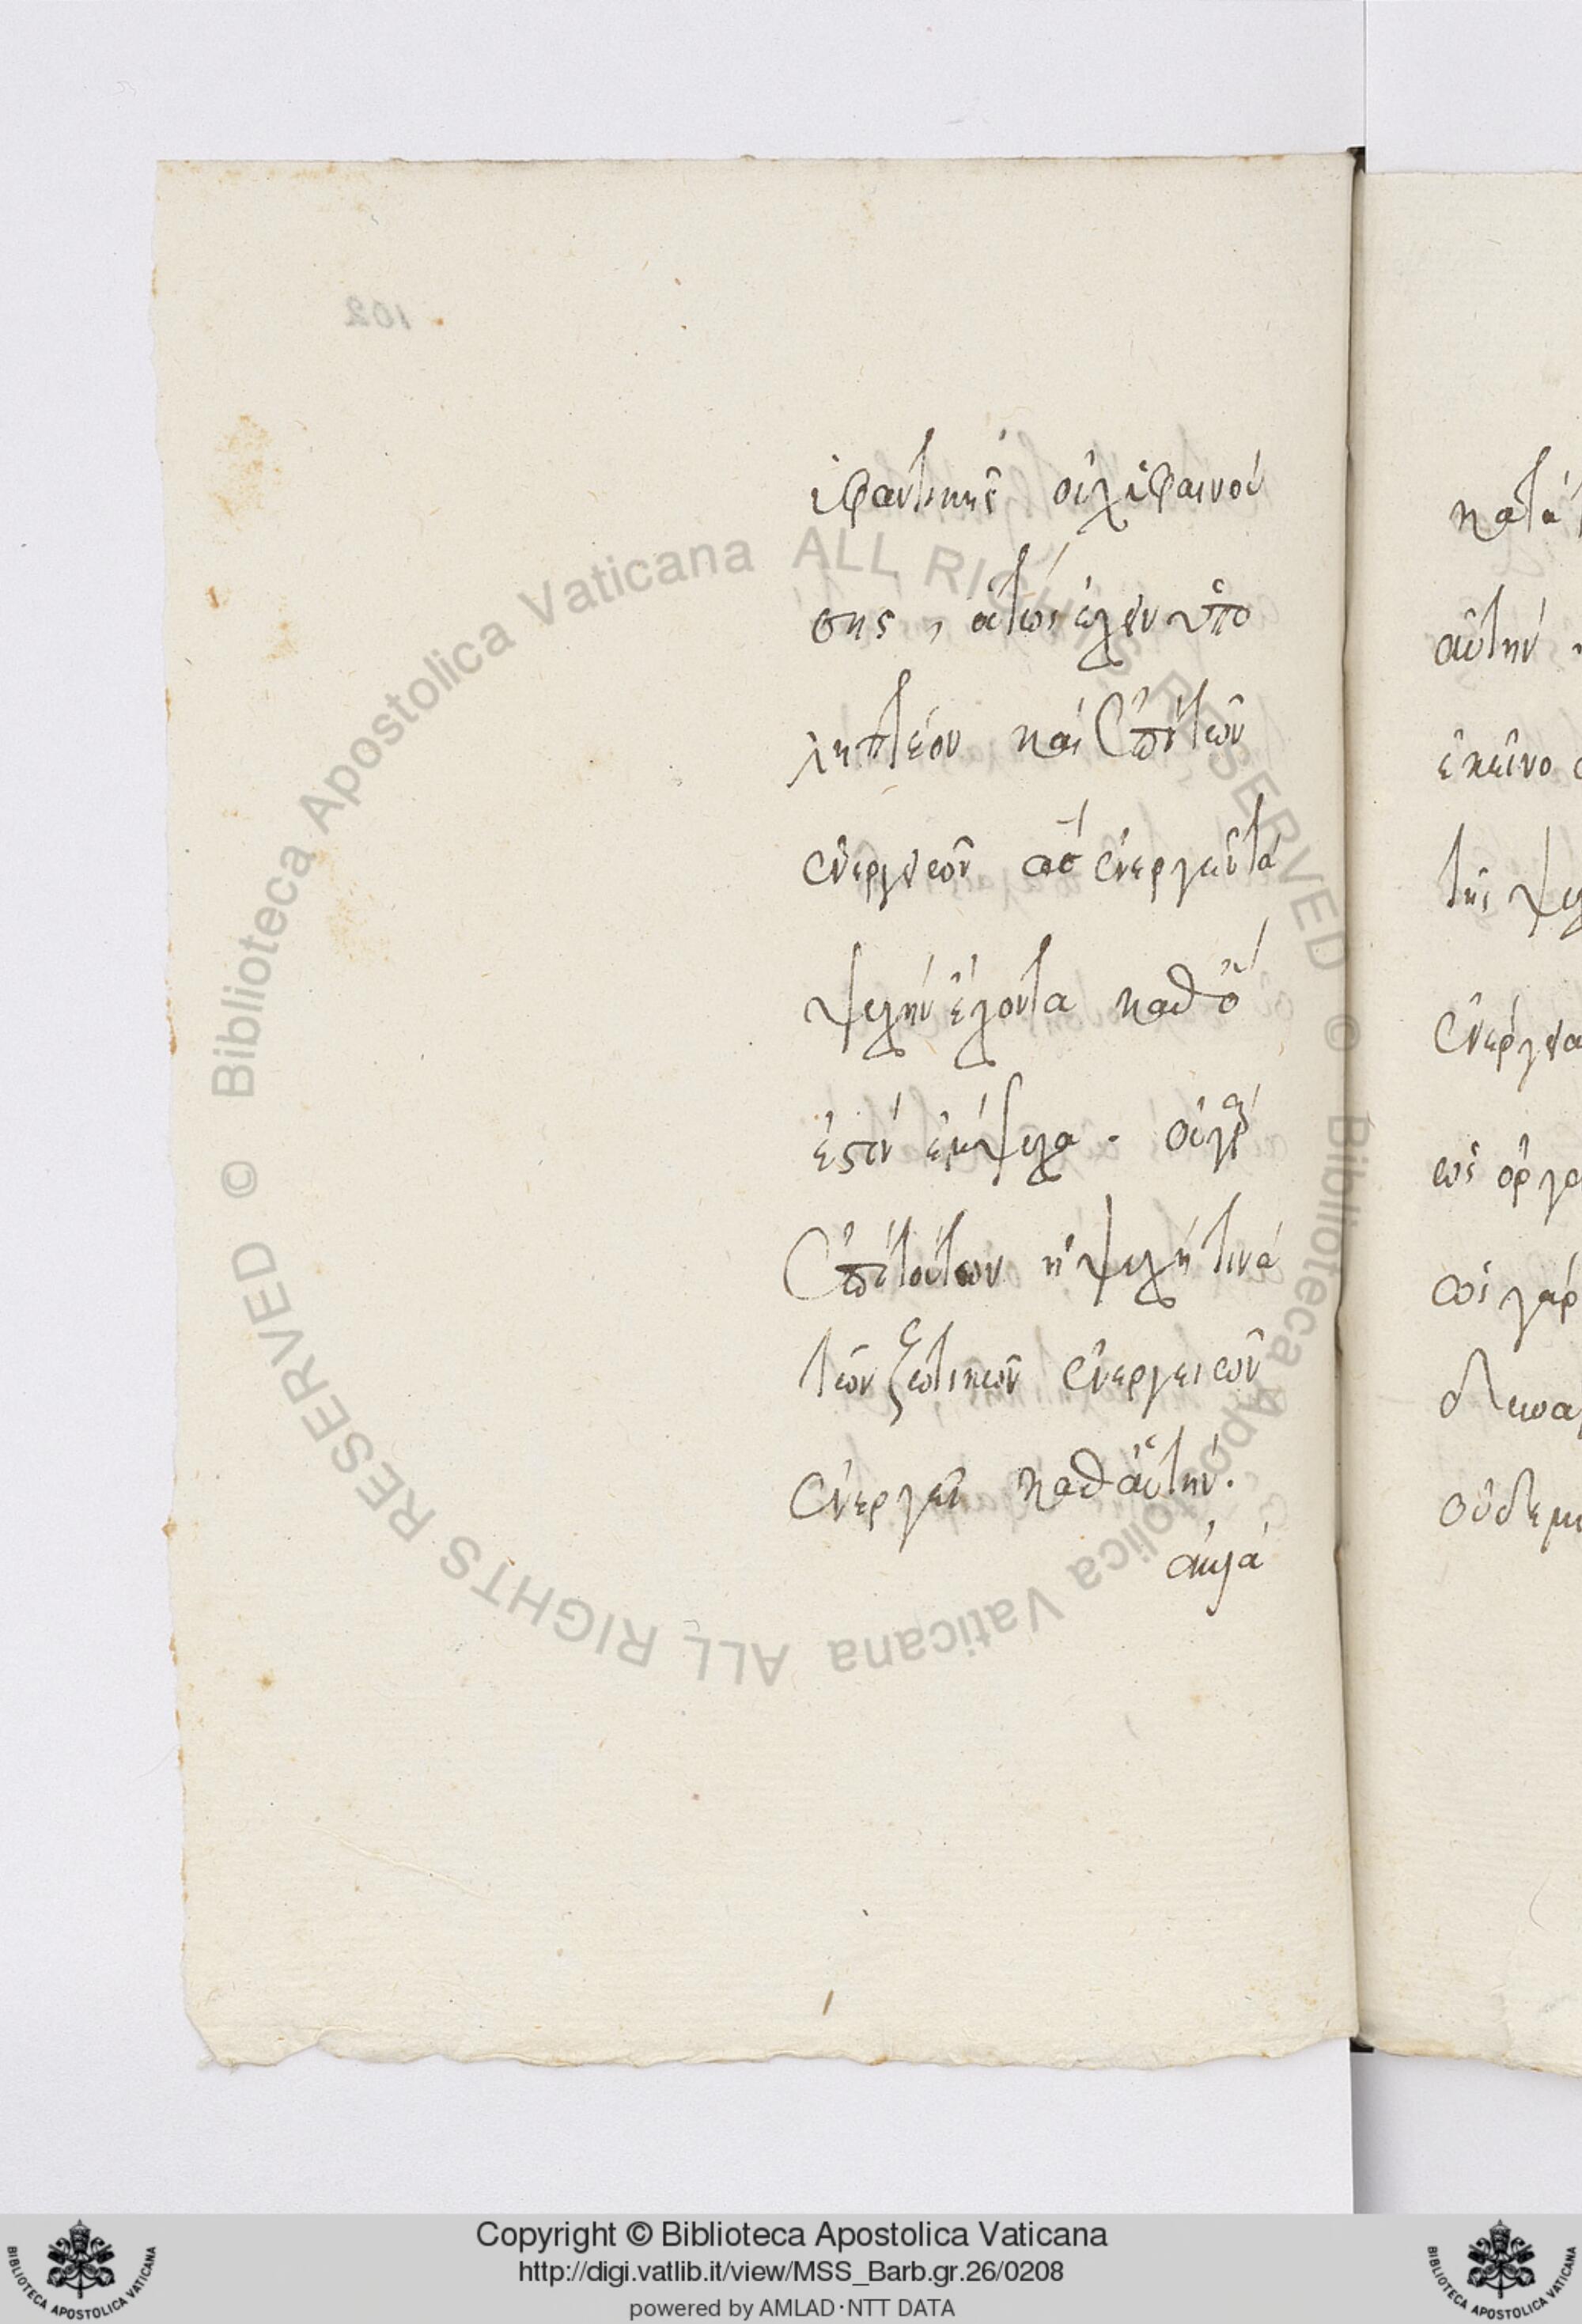 102
ὑφαντικῆς οὐχ ὑφαινού
σης, οὕτως ἔχειν ὑπο
ληπτέον καὶ ἐπὶ τῶν
ἐνεργειῶν ἃς ἐνεργεῖ τὰ
ψυχὴν ἔχοντα καθὸ
ἐστὶν ἔμψυχα. οὐ γὰρ
ἐπὶ τούτων ἡ ψυχή τινα
τῶν ζωτικῶν ἐνεργειῶν
ἐνεργεῖ καθ' αὑτήν.
ἀλλὰ
κατὰ
αὐτὴν
ἐκεῖνο
τῆς
ὡς
ὡς γὰρ
© Biblioteca Apostolica Vaticana ALL RIGHTS RESERVED © Biblioteca Apostolica Vaticana ALL RIGHTS RESERVED
Copyright © Biblioteca Apostolica Vaticana
http://digi.vatlib.it/view/MSS_Barb.gr.26/0208
powered by AMLAD·NTT DATA
BIBLIOTECA APOSTOLICA VATICANA
BIBLIOTECA APOSTOLICA VATICANA